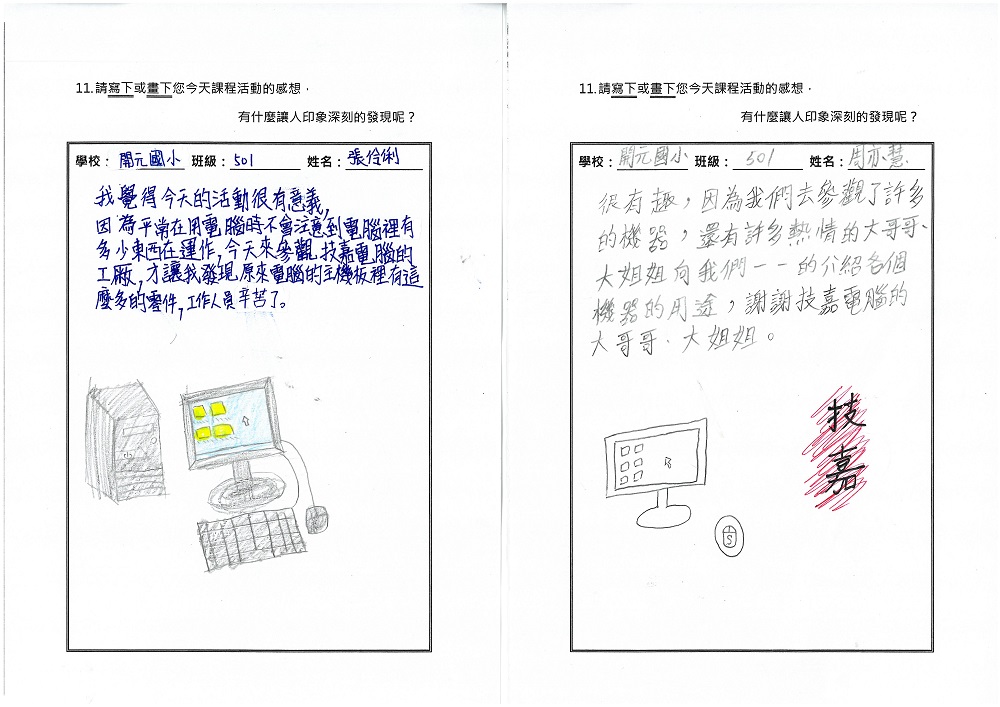 11.請寫下或畫下您今天課程活動的感想，
有什麼讓人印象深刻的發現呢？
學校：開元國小 班級：501 姓名：張伶俐
我覺得今天的活動很有意義，
因為平常在用電腦時不會注意到電腦裡有
多少東西在運作，今天來參觀技嘉電腦的
工廠，才讓我發現原來電腦的主機板裡有這
麼多的零件，工作人員辛苦了。
11.請寫下或畫下您今天課程活動的感想，
有什麼讓人印象深刻的發現呢？
學校：開元國小 班級：501 姓名：周亦慧
很有趣，因為我們去參觀了許多
的機器，還有許多熱情的大哥哥、
大姐姐向我們一一的介紹各個
機器的用途，謝謝技嘉電腦的
大哥哥、大姐姐。
技
嘉
S